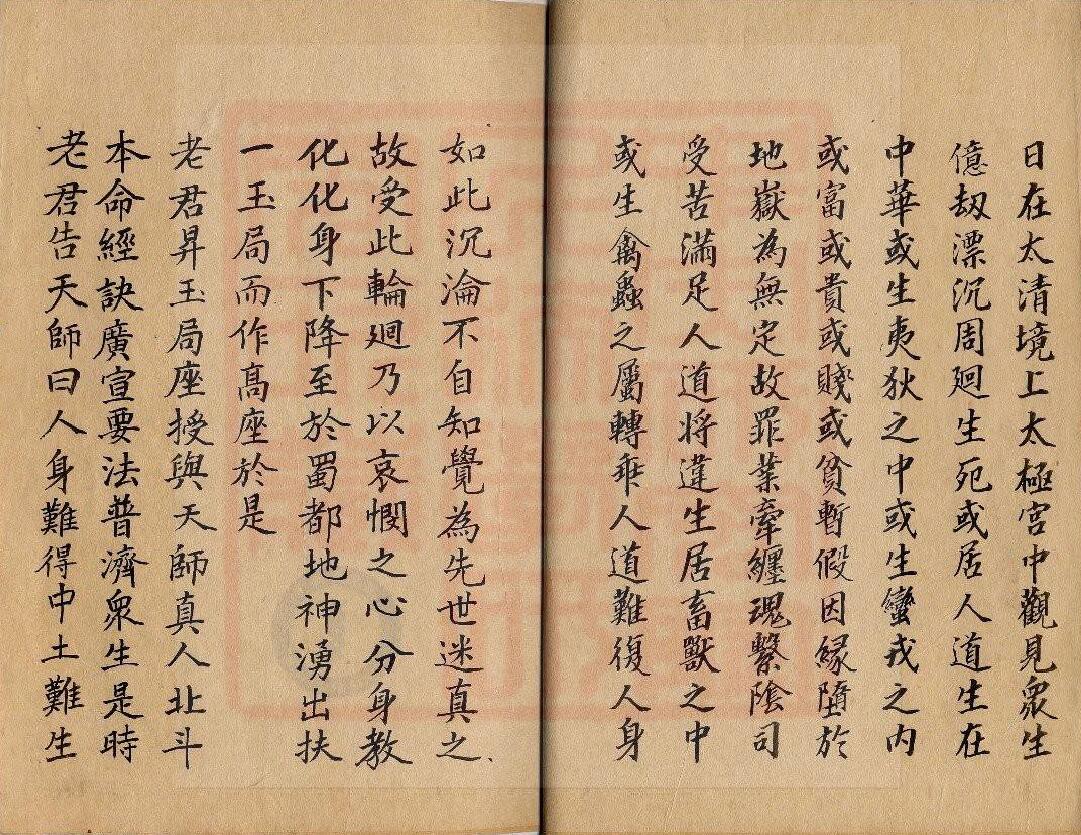 日在太清境上太極宮中觀見衆生
億劫漂沉周廻生死或居人道生在
中華或生夷狄之中或生蠻戎之内
或富或貴或賤或貧暫假因緣墮於
地嶽為無定故罪業牽纏魂繫陰司
受苦滿足人道將違生居畜獸之中
或生禽蟲之屬轉乖人道難復人身
如此沉淪不自知覺為先世迷真之
故受此輪廻乃以哀憫之心分身教
化化身下降至於蜀都地神湧出扶
一玉局而作高座於是
老君昇玉局座授與天師真人北斗
本命經訣廣宣要法普濟衆生是時
老君告天師曰人身難得中土難生